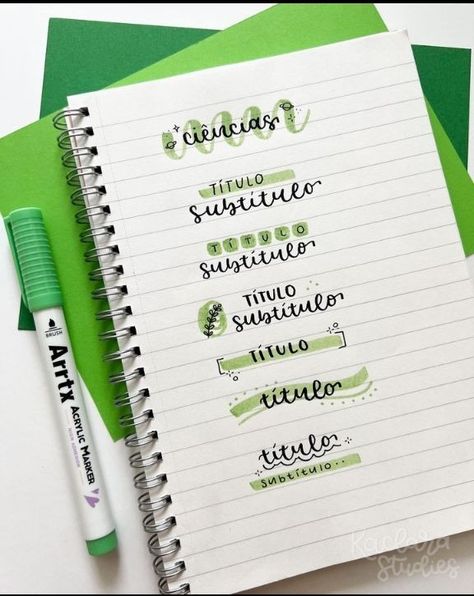 ciências
TÍTULO
subtítulo
TÍTULO
subtítulo
TÍTULO
subtítulo
TÍTULO
título
título
subtítulo..
BRUSH
Arrtx
ACRYLIC MARKER
Studies